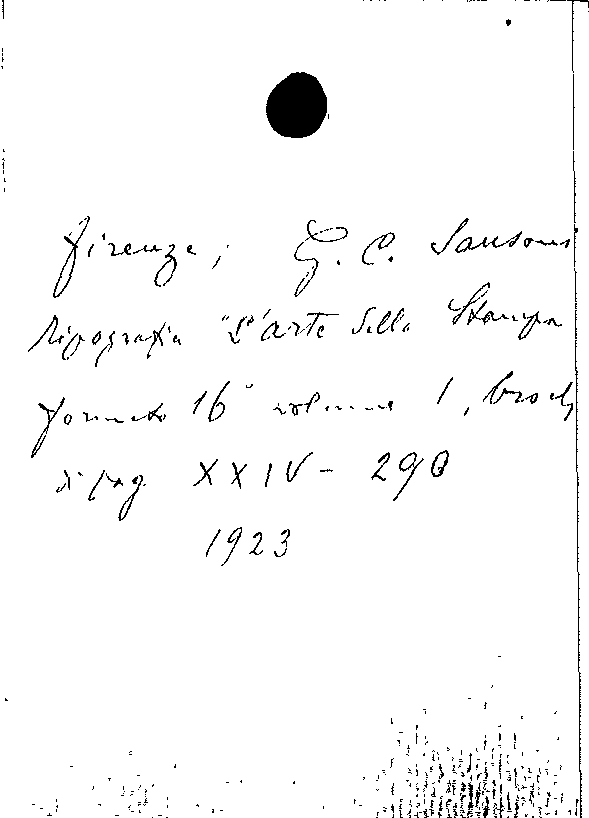 Firenze; G. C. Sansoni
Tipografia "L'arte della Stampa
formato 16° volume 1, broch
di pag. XXIV - 290
1923